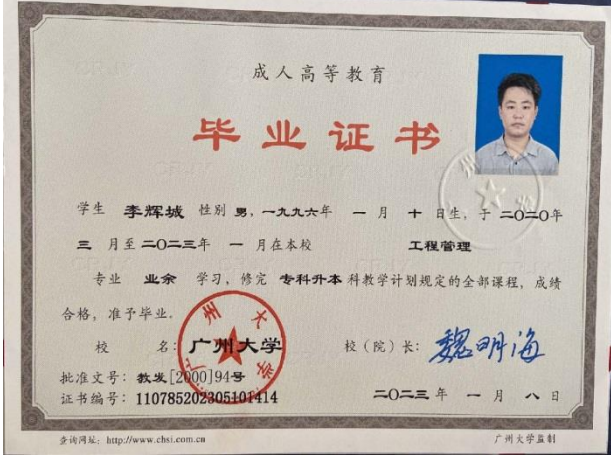 成人高等教育
毕业证书
学生 李辉城 性别 男，一九九六年 一 月 十 日生，于 二〇二〇年
三 月至 二〇二三年 一 月在本校 工程管理
专业 业余 学习，修完 专科升本 科教学计划规定的全部课程，成绩
合格，准予毕业。
校 名：广州大学 校（院）长：魏明海
批准文号：教发[2000]94号
证书编号：110785202305101414 二〇二三 年 一 月 八 日
查询网址：http://www.chsi.com.cn 广州大学监制
广州大学